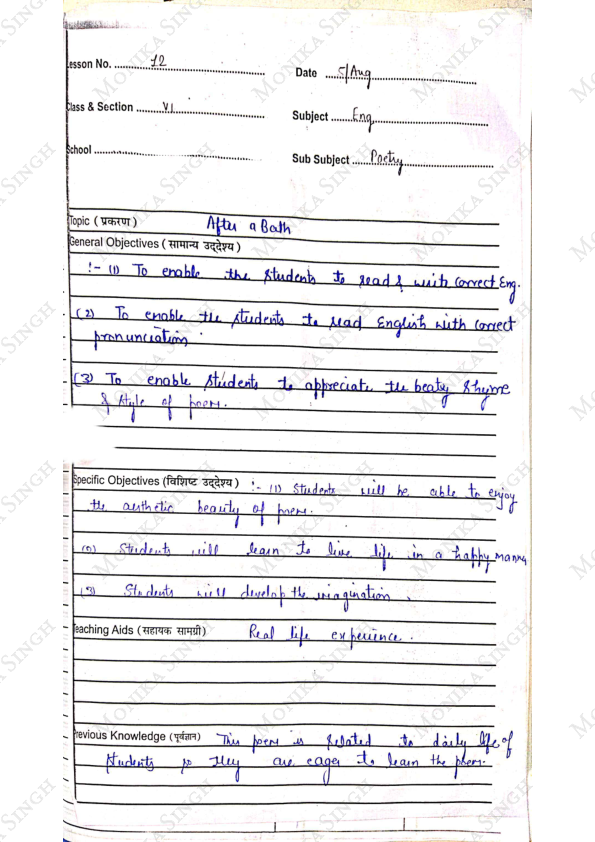 Lesson No. 12
Date 5/Aug
Class & Section VI
Subject Eng
School
Sub Subject Poetry
Topic ( प्रकरण ) After a Bath
General Objectives ( सामान्य उद्देश्य )
:- (1) To enable the students to read & with correct Eng.
(2) To enable the students to read English with correct
pronunciation
(3) To enable students to appreciate the beaty rhyme
& style of poem.
Specific Objectives (विशिष्ट उद्देश्य ) :- (1) Students will be able to enjoy
the authetic beauty of poem.
(2) Students will learn to live life in a happy manny
(3) Students will develop the imagination.
Teaching Aids ( सहायक सामग्री) Real life experience.
Previous Knowledge (पूर्वज्ञान) This poem is related to daily life of
students so they are eager to learn the poem.
MONIKA SINGH